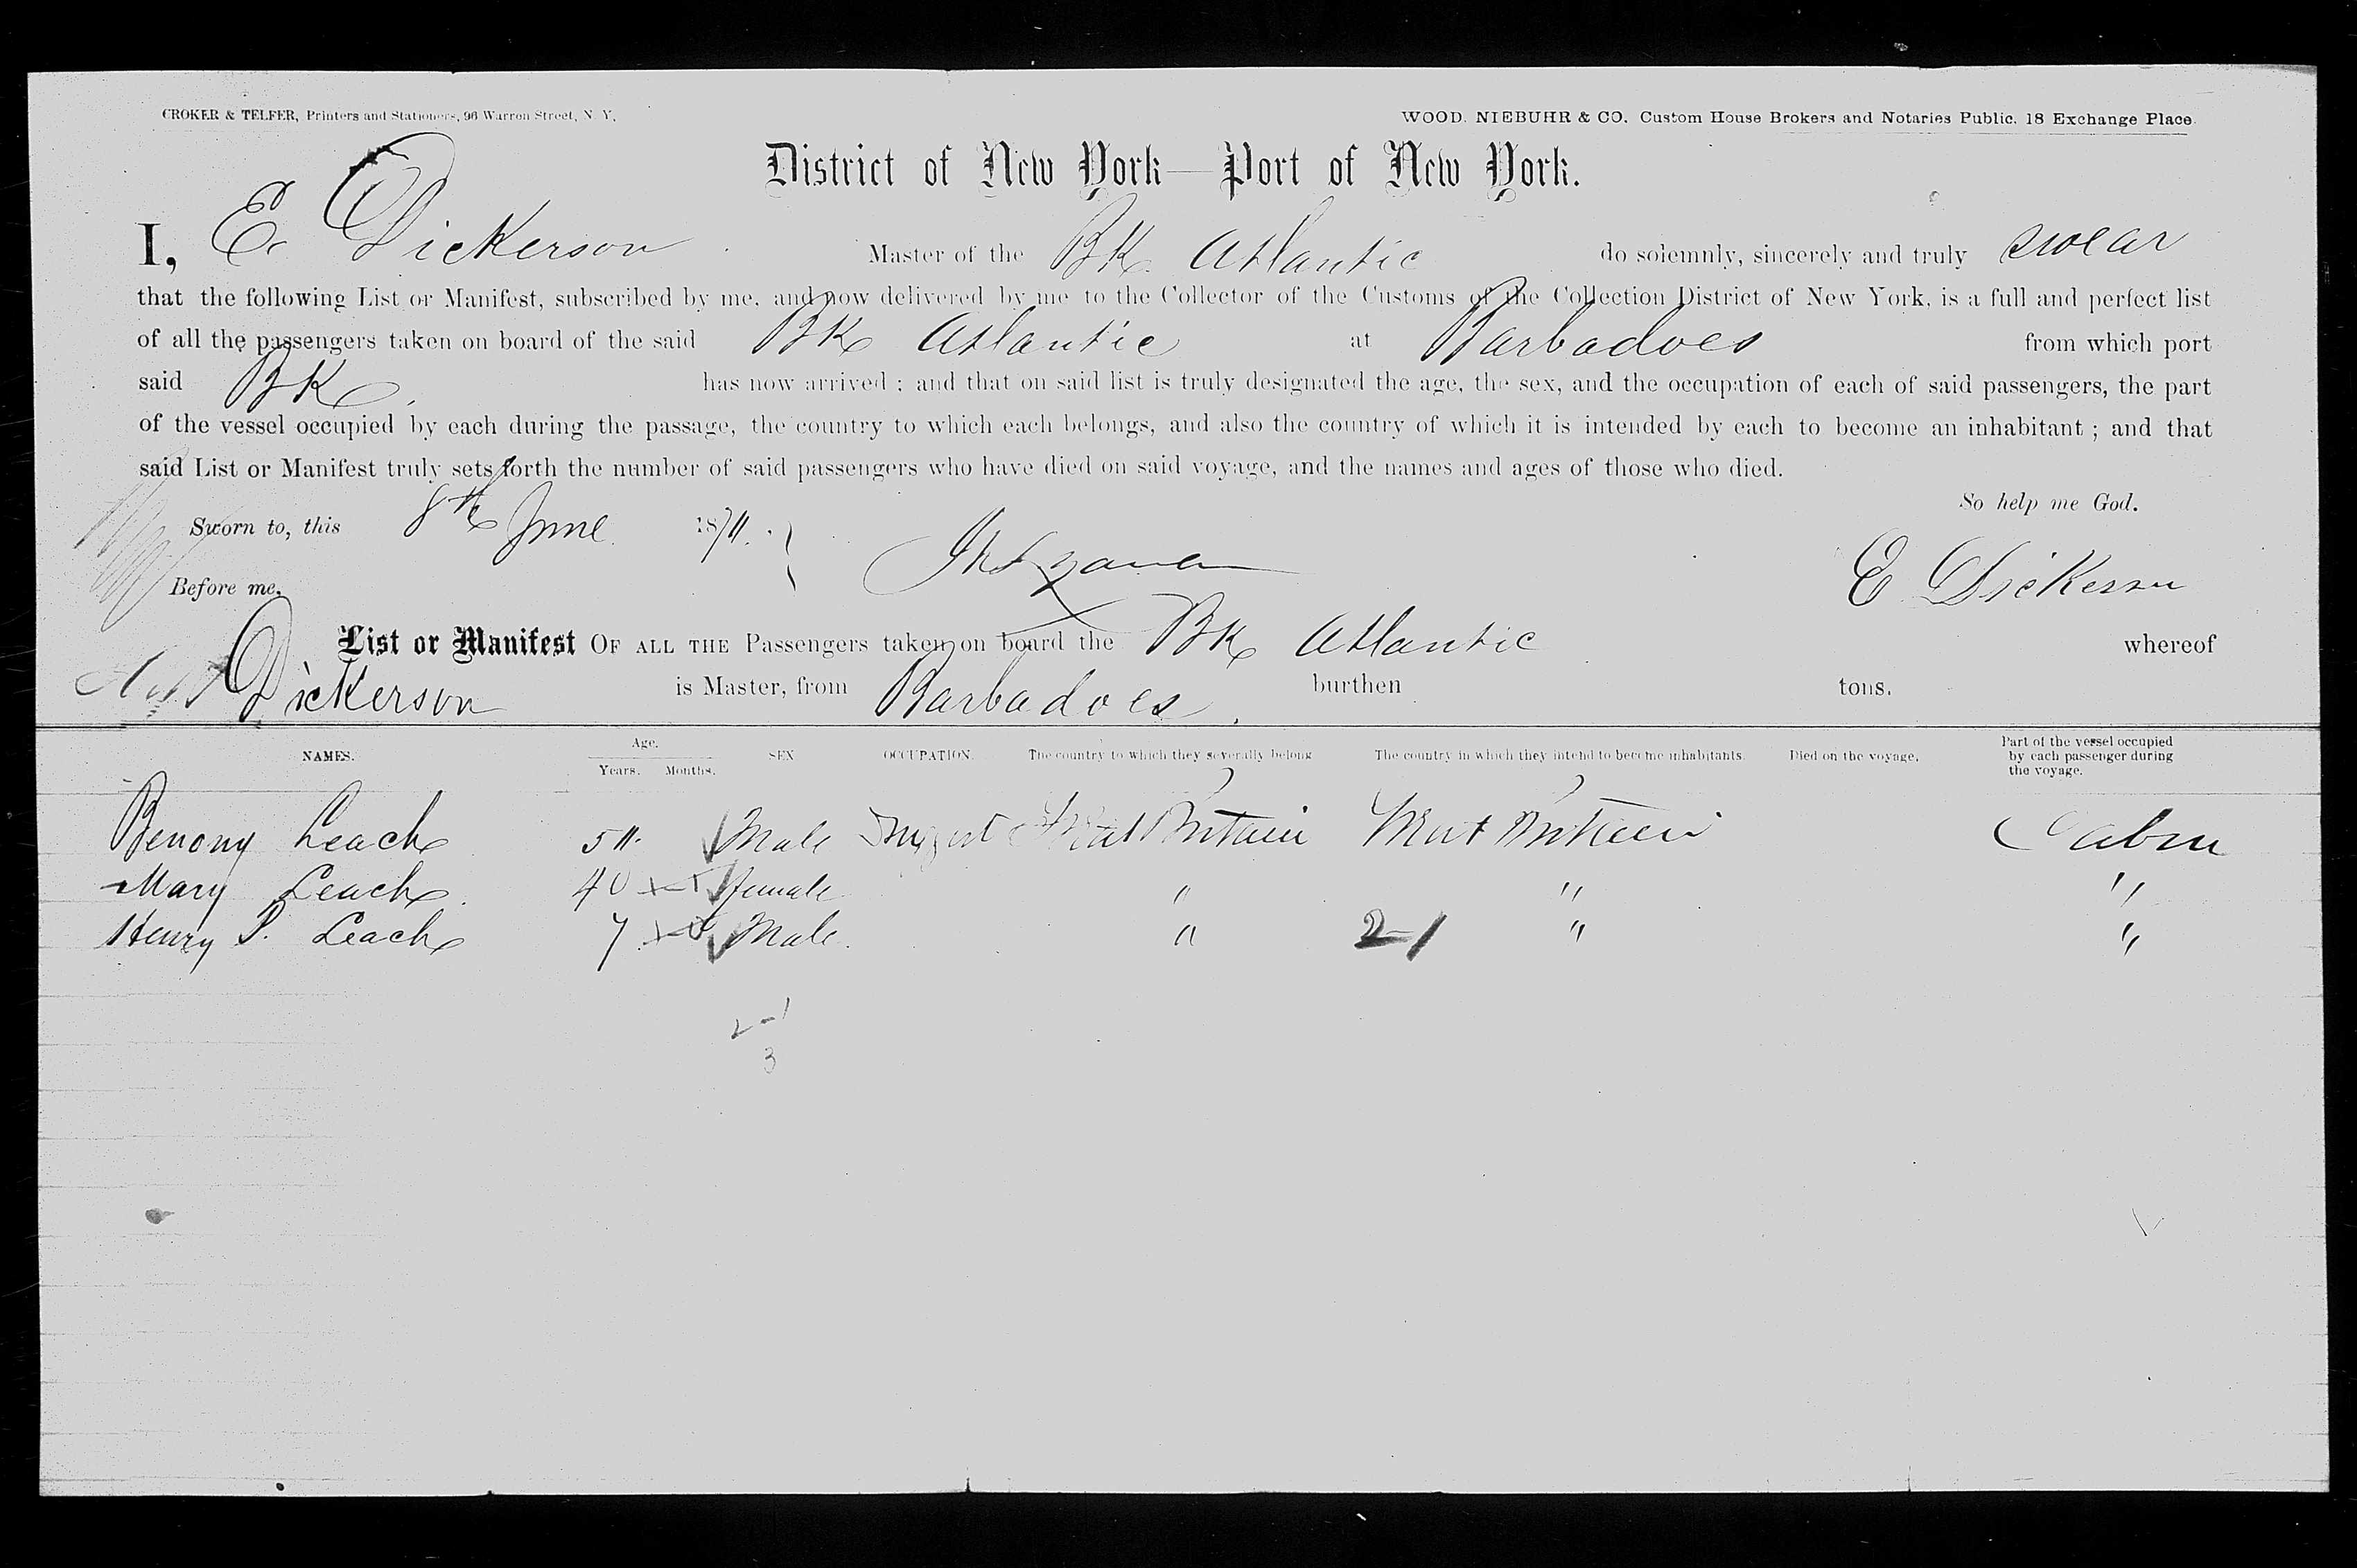 CROKER & TELFER, Printers and Stationers, 96 Warren Street, N. Y.
WOOD. NIEBUHR & CO. Custom House Brokers and Notaries Public. 18 Exchange Place.
District of New York—Port of New York.
I, E Dickerson Master of the Bk Atlantic do solemnly, sincerely and truly swear
that the following List or Manifest, subscribed by me, and now delivered by me to the Collector of the Customs of the Collection District of New York, is a full and perfect list
of all the passengers taken on board of the said Bk Atlantic at Barbadoes from which port
said Bk has now arrived ; and that on said list is truly designated the age, the sex, and the occupation of each of said passengers, the part
of the vessel occupied by each during the passage, the country to which each belongs, and also the country of which it is intended by each to become an inhabitant ; and that
said List or Manifest truly sets forth the number of said passengers who have died on said voyage, and the names and ages of those who died.
So help me God.
Sworn to, this 8th June 18
Before me,
E Dickerson
List or Manifest OF ALL THE Passengers taken on board the Bk Atlantic whereof
Dickerson is Master, from Barbadoes. burthen tons.
NAMES. Age. Years. Months. SEX OCCUPATION. The country to which they severally belong The country in which they intend to become inhabitants. Died on the voyage. Part of the vessel occupied by each passenger during the voyage.
Benony Leach Male Great Britain Great Britain Cabin
Mary Leach 40 female " " "
Henry P. Leach 7 Male " 2-1 " "
2-1
3